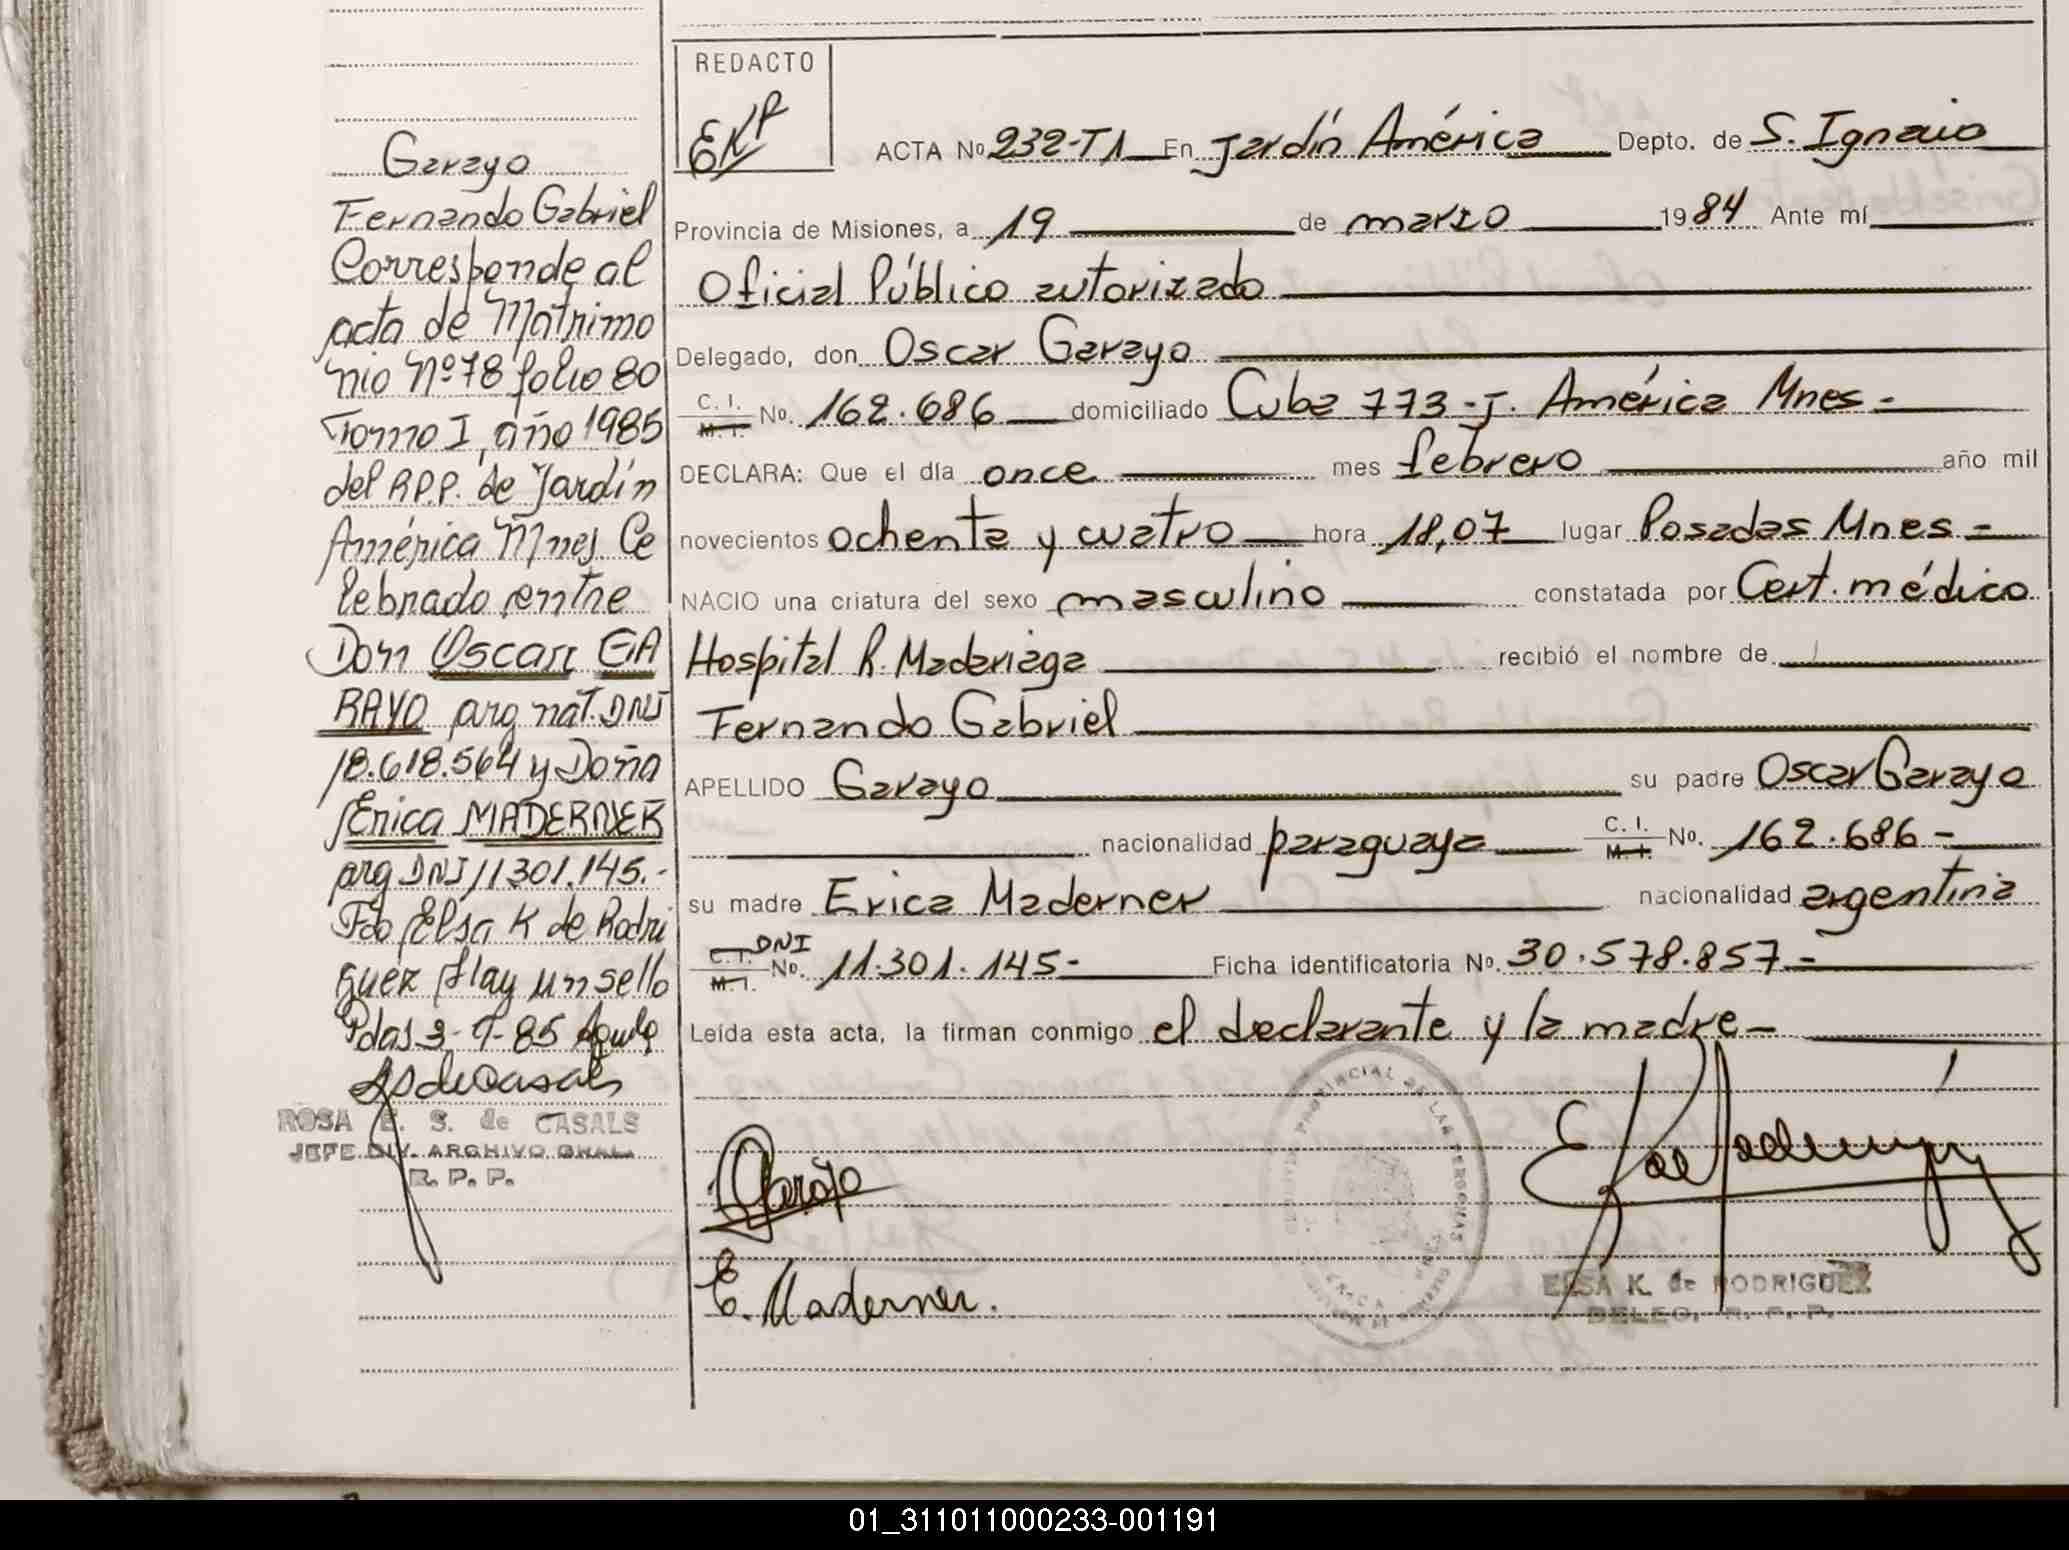 Garayo
Fernando Gabriel
Corresponde al
acta de Matrimo
nio Nº 78 folio 80
Tomo I, año 1985
del R.P.P. de Jardín
América Mnes Ce
lebrado entre
Don Oscar GA
RAYO arg nat. DNI
18.618.564 y Doña
Erica MADERNER
arg DNI 11301.145.-
Fdo Elsa K de Rodri
guez Hay un sello
Pdas 3-9-85
ROSA E. S. de CASALS
JEFE DIV. ARCHIVO GRAL.
R. P. P.
REDACTO
ACTA Nº 232-T1 En Jardín América Depto. de S. Ignacio
Provincia de Misiones, a 19 de marzo 1984 Ante mí
Oficial Público autorizado
Delegado, don Oscar Garayo
C. I. M. I. No. 162.686 domiciliado Cuba 773-J. América Mnes-
DECLARA: Que el día once mes febrero año mil
novecientos ochenta y cuatro hora 18,07 lugar Posadas Mnes-
NACIO una criatura del sexo masculino constatada por Cert. médico
Hospital R. Madariaga recibió el nombre de
Fernando Gabriel
APELLIDO Garayo su padre Oscar Garayo
nacionalidad paraguaya C. I. M. I. No. 162.686-
su madre Erica Maderner nacionalidad argentina
C. I. M. I. DNI No. 11.301.145- Ficha identificatoria Nº. 30.578.857.-
Leída esta acta, la firman conmigo el declarante y la madre-
Garayo
E. Maderner.
ELSA K. de RODRIGUEZ
DELEG. R. P. P.
01_311011000233-001191